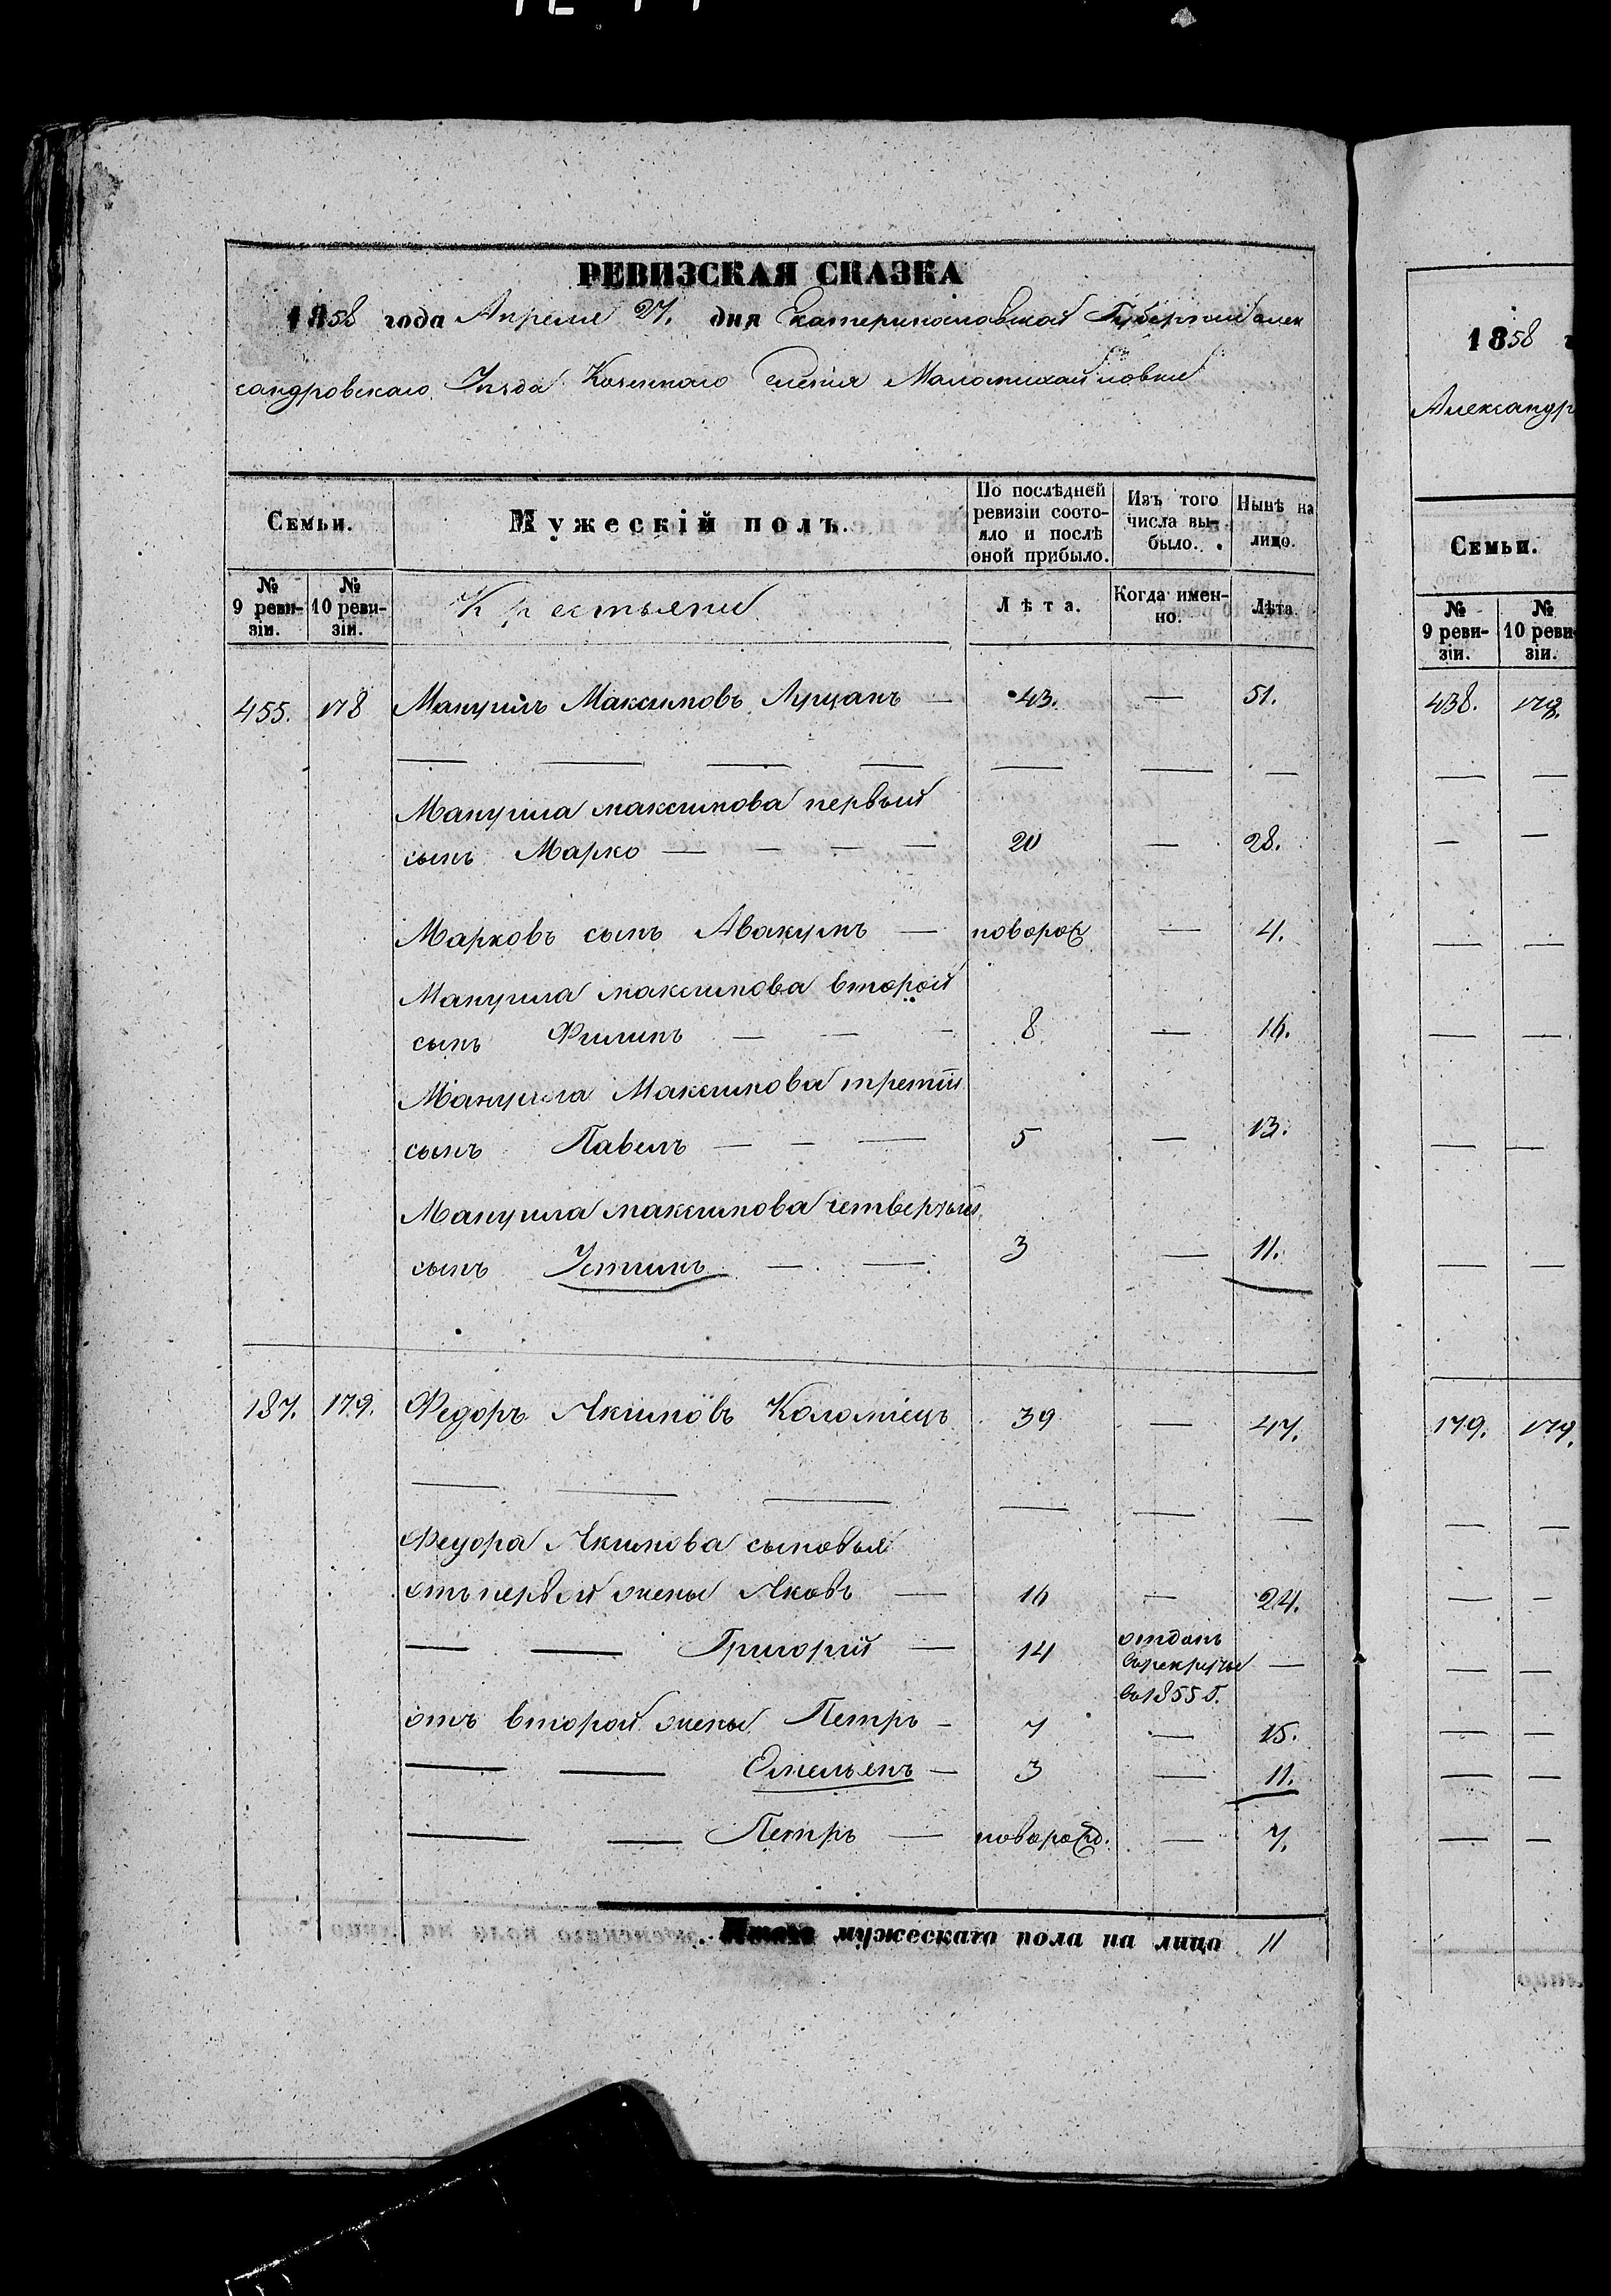 РЕВИЗСКАЯ СКАЗКА
1858 года Апреля 27. дня Екатеринославской Губернии Алек
сандровскаго Уезда Казеннаго Селения Маломихайловки
Семьи.
Мужескій полъ.
По послѣдней ревизіи состояло и послѣ оной прибыло.
Изъ того числа выбыло.
Нынѣ на лицо.
№ 9 ревизіи.
№ 10 ревизіи.
Крестьяне
Лѣта.
Когда именно.
Лѣта.
455. 178 Мануилъ Максимовъ Луцанъ — 43. — 51.
Мануила максимова первый
сынъ Марко — — — — 20 — 28.
Марковъ сынъ Авакумъ — поворож — 4.
Мануила максимова второй
сынъ Филипъ — — — 8 — 16.
Мануила Максимова третій
сынъ Павелъ — — — 5 — 13.
Мануила максимова четвертый
сынъ Устинъ — — 3 — 11.
187. 179. Федоръ Якимовъ Коломіецъ 39 — 47.
Федора Якимова сыновья
отъ первой жены Яковъ — 16 — 24.
— — Григорій — 14 отданъ в рекруты во 1855 г. —
отъ второй жены Петръ — 7 — 15.
— — Омельянъ — 3 — 11.
— — Петръ — новорожд. — 7.
Итого мужескаго пола на лицо 11
1858
Александр
Семьи.
№ 9 ревизіи.
№ 10 реви зіи.
438. 178.
179. 179.